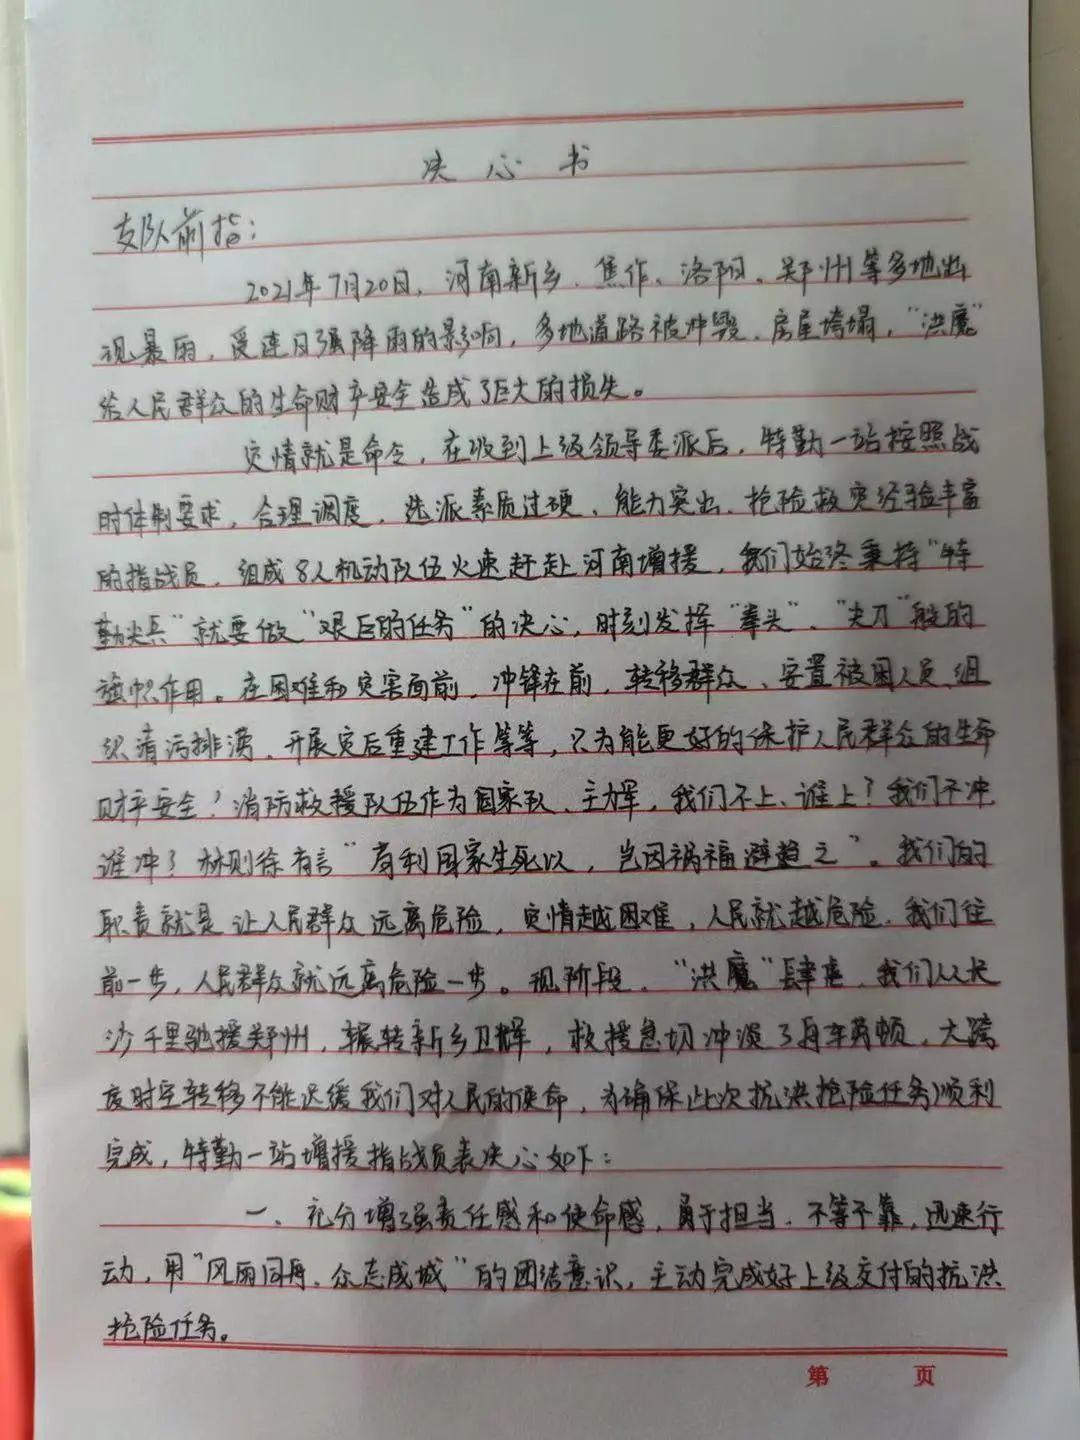 决心书
支队前指：
2021年7月20日，河南新乡、焦作、洛阳、郑州等多地出
现暴雨，受连日强降雨的影响，多地道路被冲毁、房屋垮塌，“洪魔”
给人民群众的生命财产安全造成了巨大的损失。
灾情就是命令，在收到上级领导委派后，特勤一站按照战
时体制要求，合理调度，选派素质过硬、能力突出、抢险救灾经验丰富
的指战员，组成8人机动队伍火速赶赴河南增援，我们始终秉持“特
勤尖兵”就要做“艰巨的任务”的决心，时刻发挥“拳头”、“尖刀”般的
旗帜作用。在困难和灾害面前，冲锋在前，转移群众、安置被困人员、组
织清污排涝、开展灾后重建工作等等，只为能更好的保护人民群众的生命
财产安全！消防救援队伍作为国家队、主力军，我们不上、谁上？我们不冲
谁冲？林则徐有言“有利国家生死以，岂因祸福避趋之”。我们的
职责就是让人民群众远离危险，灾情越困难，人民就越危险，我们往
前一步，人民群众就远离危险一步。现阶段，“洪魔”肆虐，我们从长
沙千里驰援郑州，辗转新乡卫辉，救援急切冲淡了舟车劳顿，大跨
度时空转移不能迟缓我们对人民的使命，为确保此次抗洪抢险任务顺利
完成，特勤一站增援指战员表决心如下：
一、充分增强责任感和使命感，勇于担当、不等不靠，迅速行
动，用“风雨同舟、众志成城”的团结意识，主动完成好上级交付的抗洪
抢险任务。
第 页